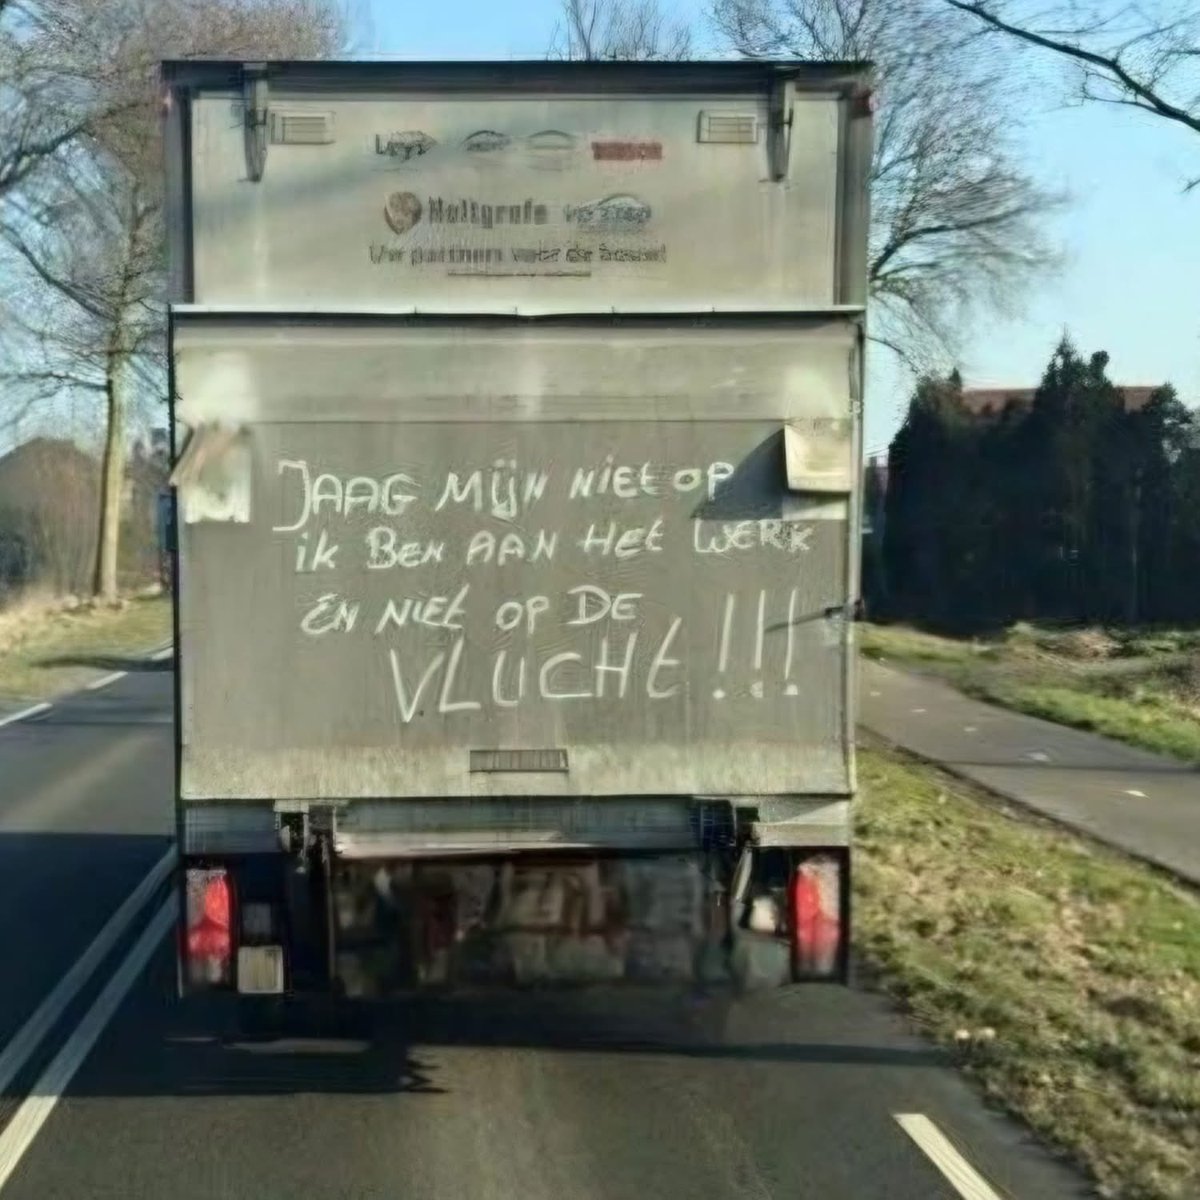 Holtgrefe
Uw partner voor de bouw!
JAAG MIJN NIET OP
iK BEN AAN HET WERK
EN NIET OP DE
VLUCHT!!!